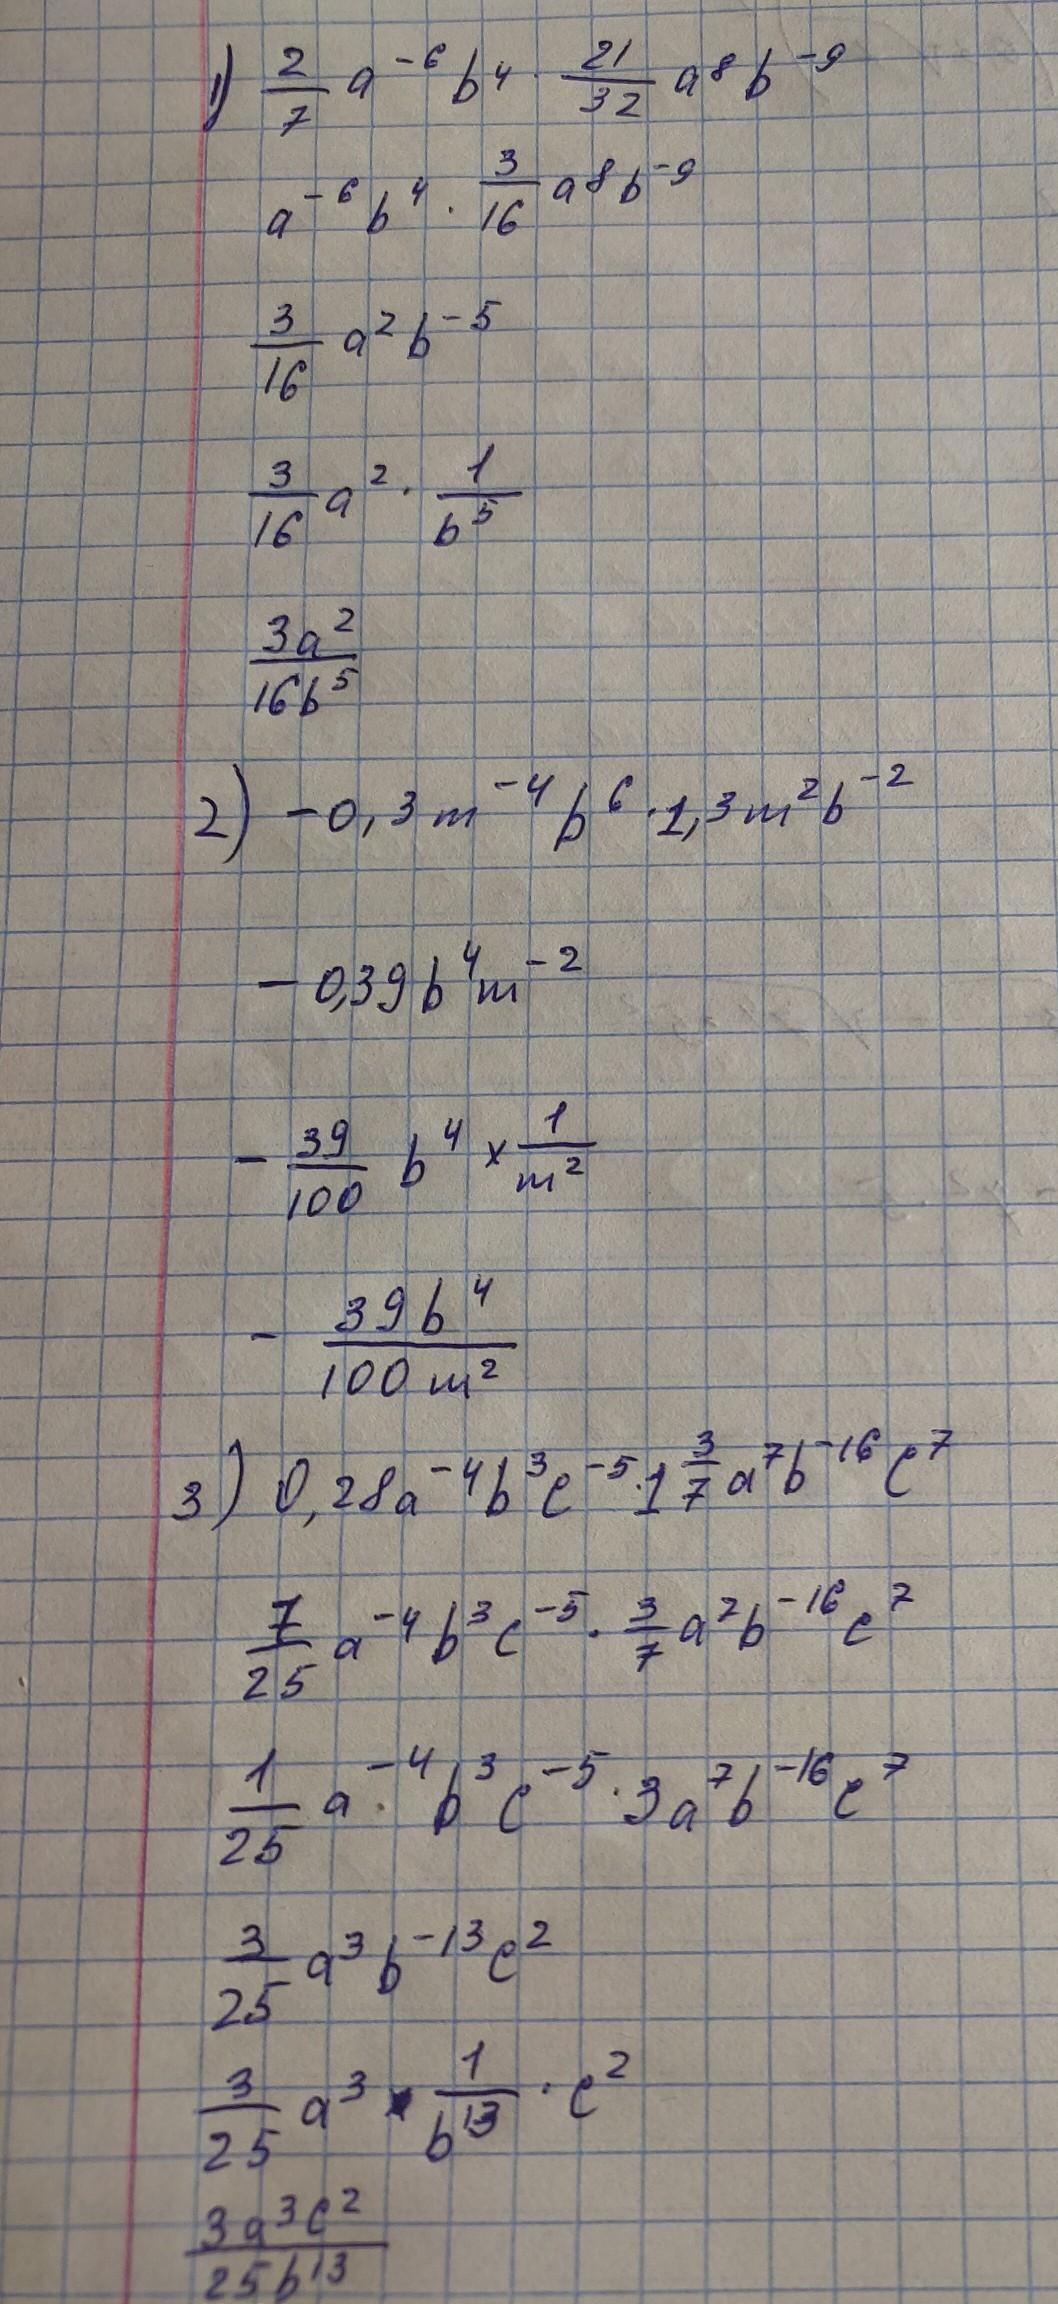 1) 2/7 a⁻⁶ b⁴ · 21/32 a⁸ b⁻⁹
a⁻⁶ b⁴ · 3/16 a⁸ b⁻⁹
3/16 a² b⁻⁵
3/16 a² · 1/b⁵
3a²/16b⁵
2) -0,3m⁻⁴b⁶ · 1,3m²b⁻²
-0,39b⁴m⁻²
- 39/100 b⁴ × 1/m²
- 39b⁴/100m²
3) 0,28a⁻⁴b³c⁻⁵ · 1 3/7 a⁷b⁻¹⁶c⁷
7/25 a⁻⁴b³c⁻⁵ · 3/7 a⁷b⁻¹⁶c⁷
1/25 a⁻⁴b³c⁻⁵ · 3a⁷b⁻¹⁶c⁷
3/25 a³b⁻¹³c²
3/25 a³ · 1/b¹³ · c²
3a³c²/25b¹³